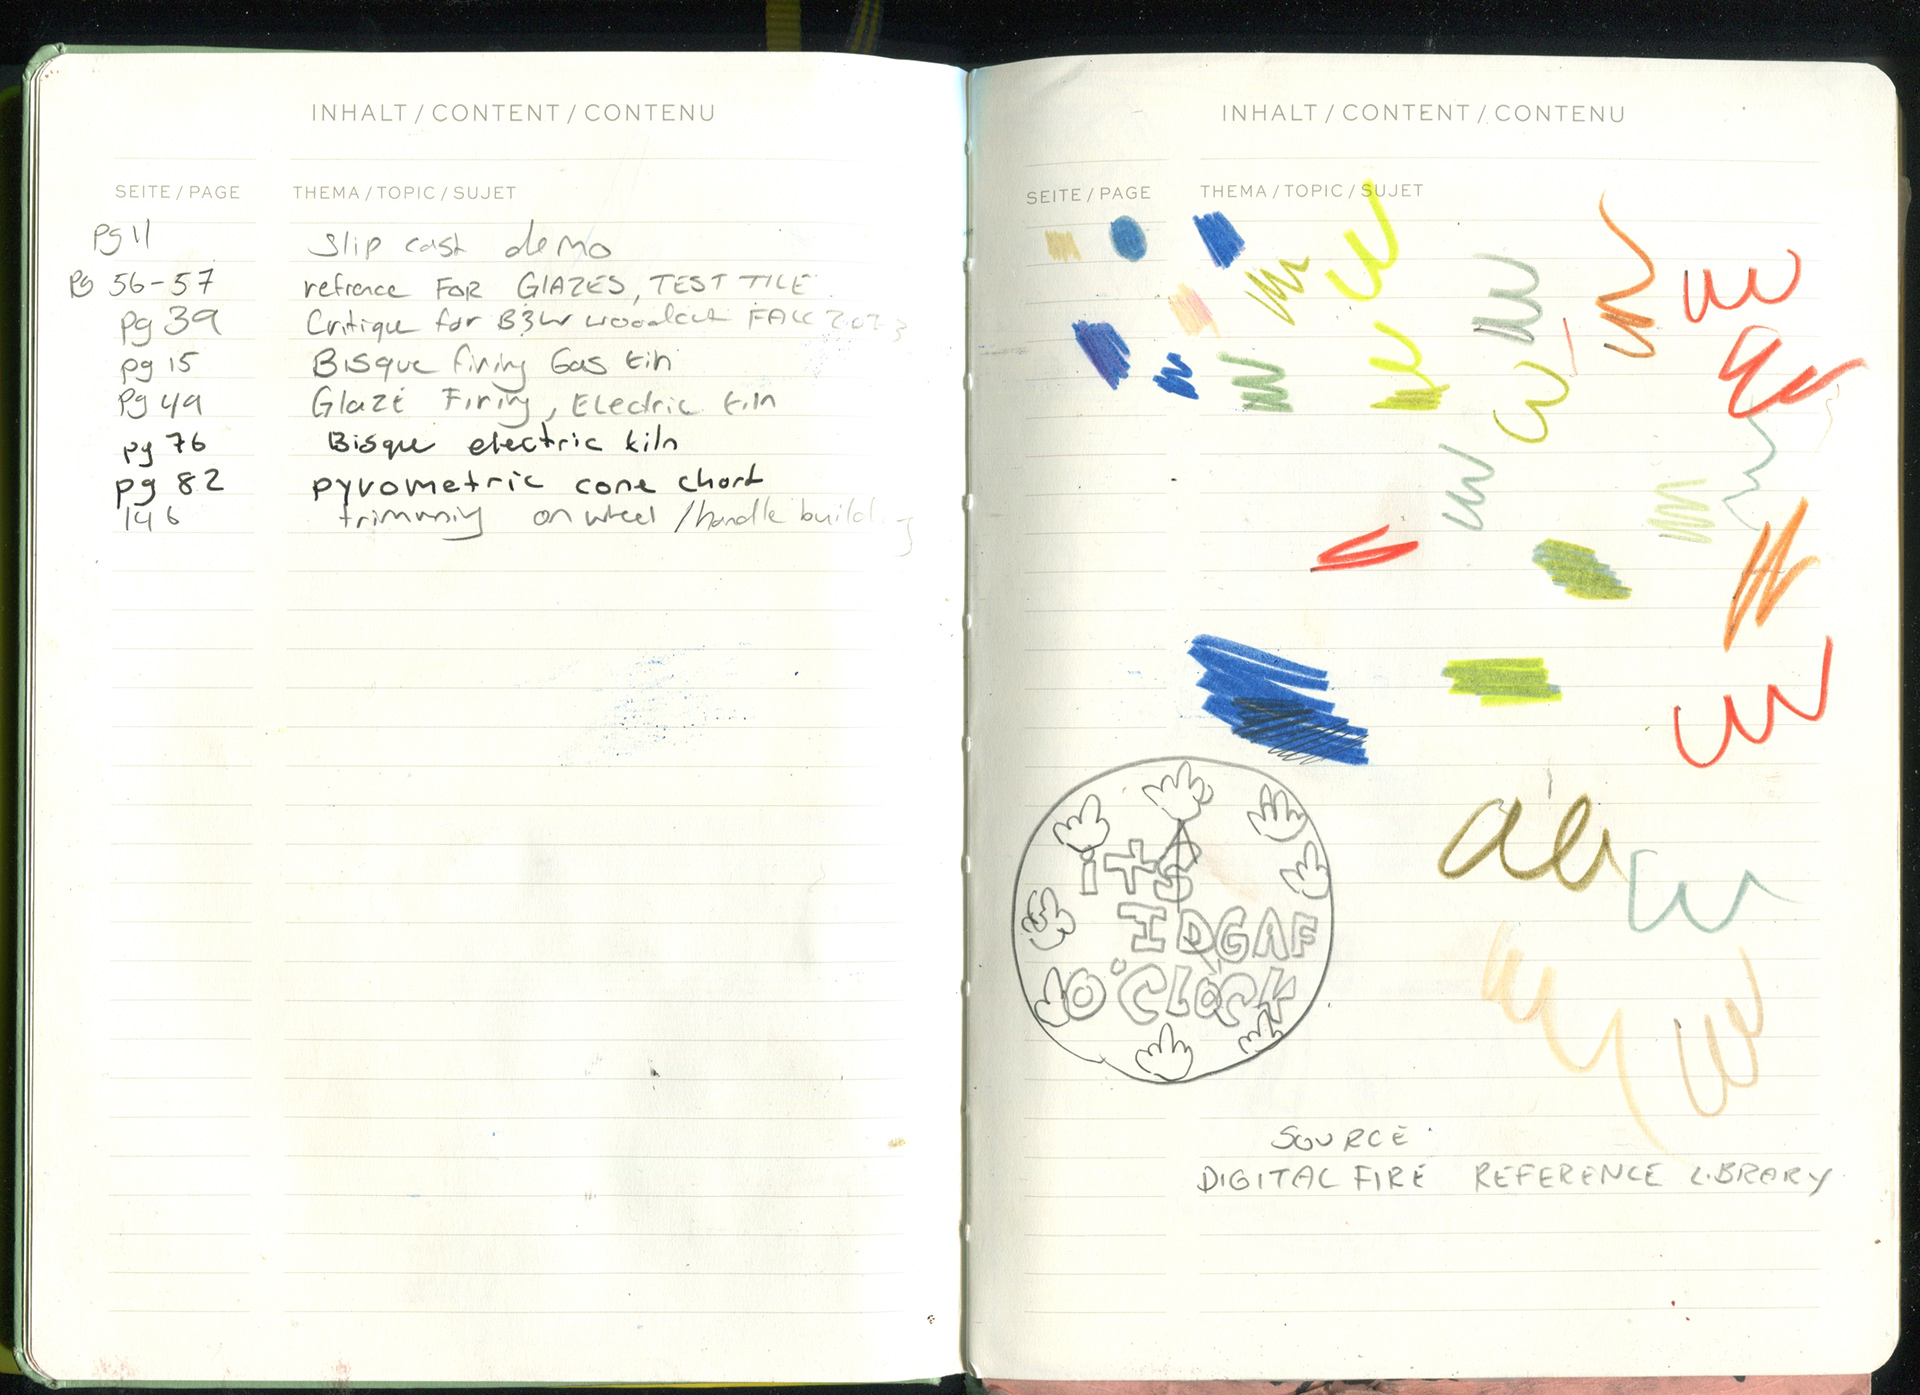 INHALT / CONTENT / CONTENU
SEITE / PAGE THEMA / TOPIC / SUJET
pg 11 Slip cast demo
pg 56-57 refrence FOR GLAZES, TEST TILE
pg 39 Critique for B&W woodcut FALL 2023
pg 15 Bisque firing Gas kiln
pg 49 Glaze Firing, Electric kiln
pg 76 Bisque electric kiln
pg 82 pyrometric cone chart
146 trimming on wheel / handle building
INHALT / CONTENT / CONTENU
SEITE / PAGE THEMA / TOPIC / SUJET
iTS
IDGAF
O'CLOCK
SOURCE
DIGITAL FIRE REFERENCE LIBRARY